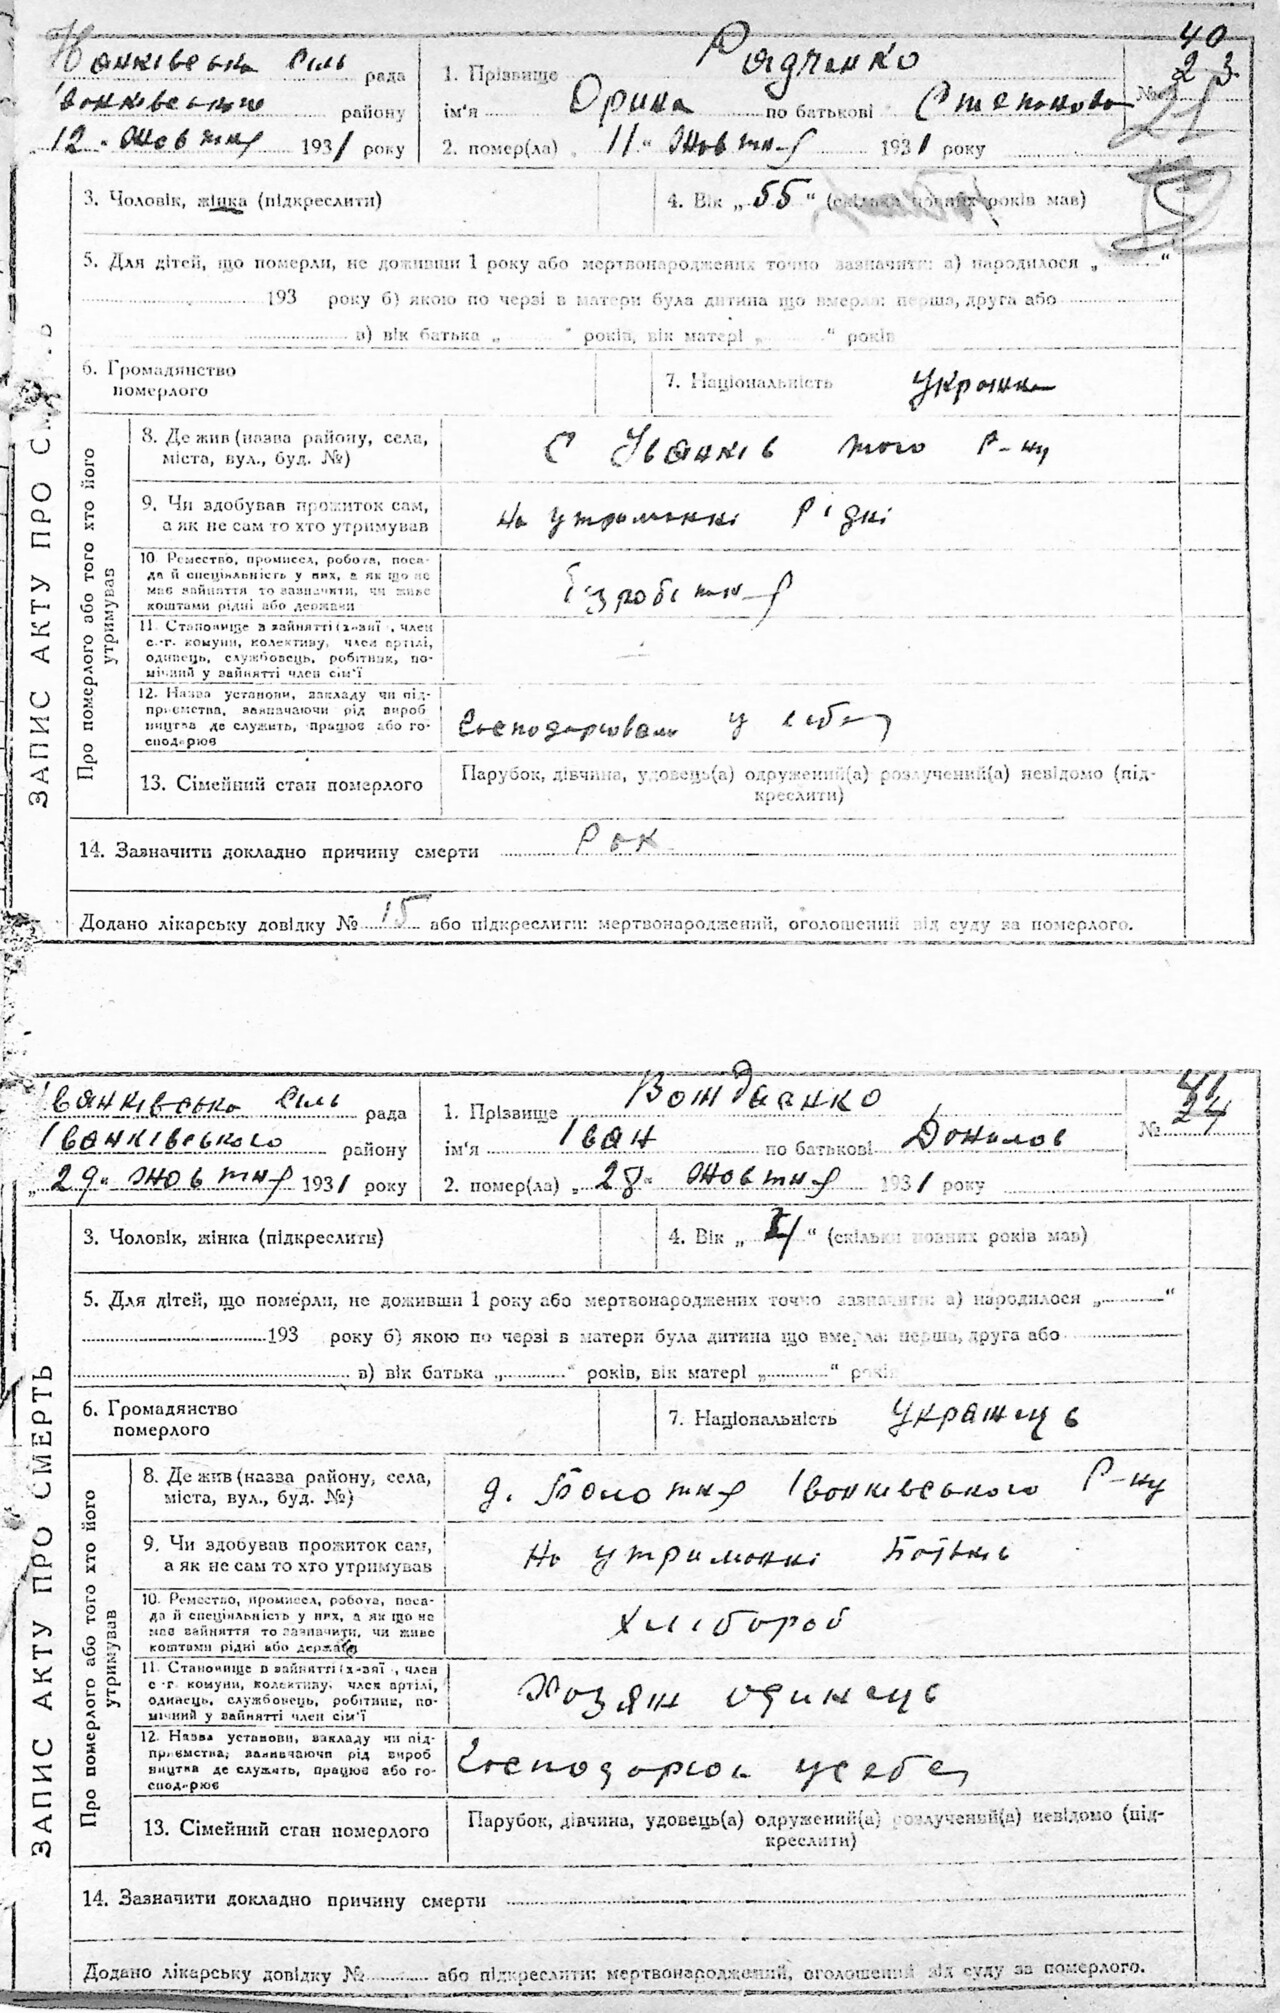 Іванківська сіль рада
Іванківського району
„12“ Жовтня 1931 року
1. Прізвище Радченко
ім'я Орина по батькові Степанова
2. помер(ла) „11“ Жовтня 1931 року
№ 40
23
21
3. Чоловік, жінка (підкреслити)
4. Вік „55“ (скільки повних років мав)
5. Для дітей, що померли, не доживши 1 року або мертвонароджених точно зазначити: а) народилося „ “
193 року б) якою по черзі в матери була дитина що вмерла: перша, друга або
в) вік батька „ “ років, вік матері „ “ років
6. Громадянство
померлого
7. Національність Украінка
ЗАПИС АКТУ ПРО
Про померлого або того хто його
утримував
8. Де жив (назва району, села,
міста, вул., буд. №)
С Іванків того р-ну
9. Чи здобував прожиток сам,
а як не сам то хто утримував
на утриманні рідні
10. Ремество, промисел, робота, поса-
да й спеціяльність у них, а як що не
має зайняття то зазначити, чи живе
коштами рідні або держави
Безробітня
11. Становище в зайнятті (х-зяї , член
с.-г. комуни, колективу, член артілі,
одинець, службовець, робітник, по-
мічний у зайнятті член сім'ї
—
12. Назва установи, закладу чи під-
приємства, зазначаючи рід вироб
ництва де служить, працює або го-
сподарює
Господарювала у себе
13. Сімейний стан померлого
Парубок, дівчина, удовець(а) одружений(а) розлучений(а) невідомо (під-
креслити)
14. Зазначити докладно причину смерти Рак
Додано лікарську довідку № 15 або підкреслити: мертвонароджений, оголошений від суду за померлого.
Іванківська сіль рада
Іванківського району
„29“ Жовтня 1931 року
1. Прізвище
ім'я Іван по батькові Данилов
2. помер(ла) „28“ Жовтня 1931 року
№ 41
24
3. Чоловік, жінка (підкреслити)
4. Вік „ “ (скільки повних років мав)
5. Для дітей, що померли, не доживши 1 року або мертвонароджених точно зазначити: а) народилося „ “
193 року б) якою по черзі в матери була дитина що вмерла: перша, друга або
в) вік батька „ “ років, вік матері „ “ років
6. Громадянство
померлого
7. Національність Украінець
ЗАПИС АКТУ ПРО СМЕРТЬ
Про померлого або того хто його
утримував
8. Де жив (назва району, села,
міста, вул., буд. №)
д. Болотня Іванківського р-ну
9. Чи здобував прожиток сам,
а як не сам то хто утримував
На утриманні Батьків
10. Ремество, промисел, робота, поса-
да й спеціяльність у них, а як що не
має зайняття то зазначити, чи живе
коштами рідні або держави
Хлібороб
11. Становище в зайнятті (х-зяї , член
с -г. комуни, колективу, член артілі,
одинець, службовець, робітник, по-
мічний у зайнятті член сім'ї
Хозяін одинець
12. Назва установи, закладу чи під-
приємства, зазначаючи рід вироб
ництва де служить, працює або го-
сподарює
Господарює у себе
13. Сімейний стан померлого
Парубок, дівчина, удовець(а) одружений(а) розлучений(а) невідомо (під-
креслити)
14. Зазначити докладно причину смерти
Додано лікарську довідку № або підкреслити: мертвонароджений, оголошений від суду за померлого.